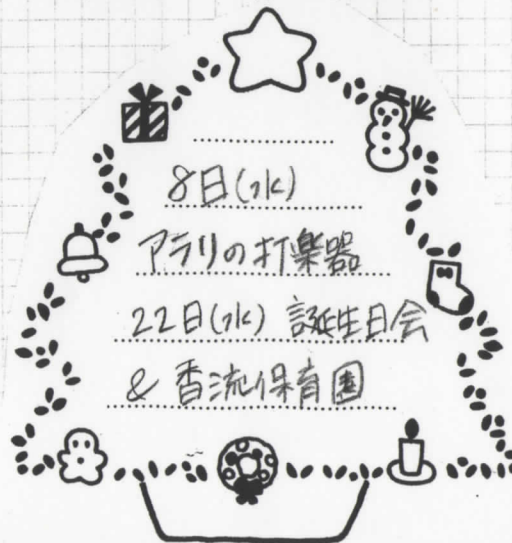 8日(水)
アラリの打楽器
22日(水) 誕生日会
& 香流保育園